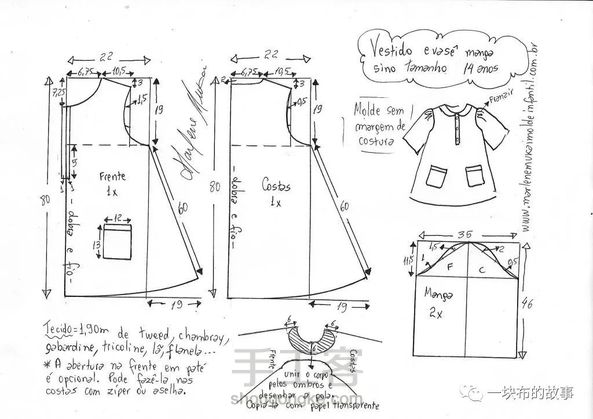 Vestido evasê manga
sino tamanho 14 anos
Franzir
Molde sem
margem de
costura
www.marlenemukaimoldeinfantil.com.br
22
6,75
10,5
7,25
3
1,5
19
5
80
Frente
1x
12
13
60
- dobra e fio -
19
22
6,75
10,5
2
3
0,5
19
80
Costas
1x
60
- dobra e fio -
19
35
11,5
1,5
2
1
0,5
F
C
Manga
2x
46
Tecido=1,90m de tweed, chambray,
gabardine, tricoline, lã, flanela...
* A abertura na frente em paté
é opcional. Pode fazê-la nas
costas com zíper ou aselha.
6
6
6
Frente
Costas
unir o corpo
pelos ombros e
desenhar a gola.
Copiá-la com papel transparente
手工客
shougongke.com
一块布的故事